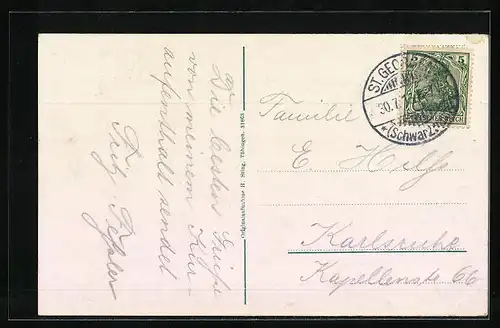 Die besten Grüße
von meinem Kur-
aufenthalt sendet
Fritz
Originalaufnahme H. Sting, Tübingen. 31963
ST. GEORGEN
30.7.
(Schwarzw.)
5 5
Familie
E. Hilß
Karlsruhe
Kapellenstr 66